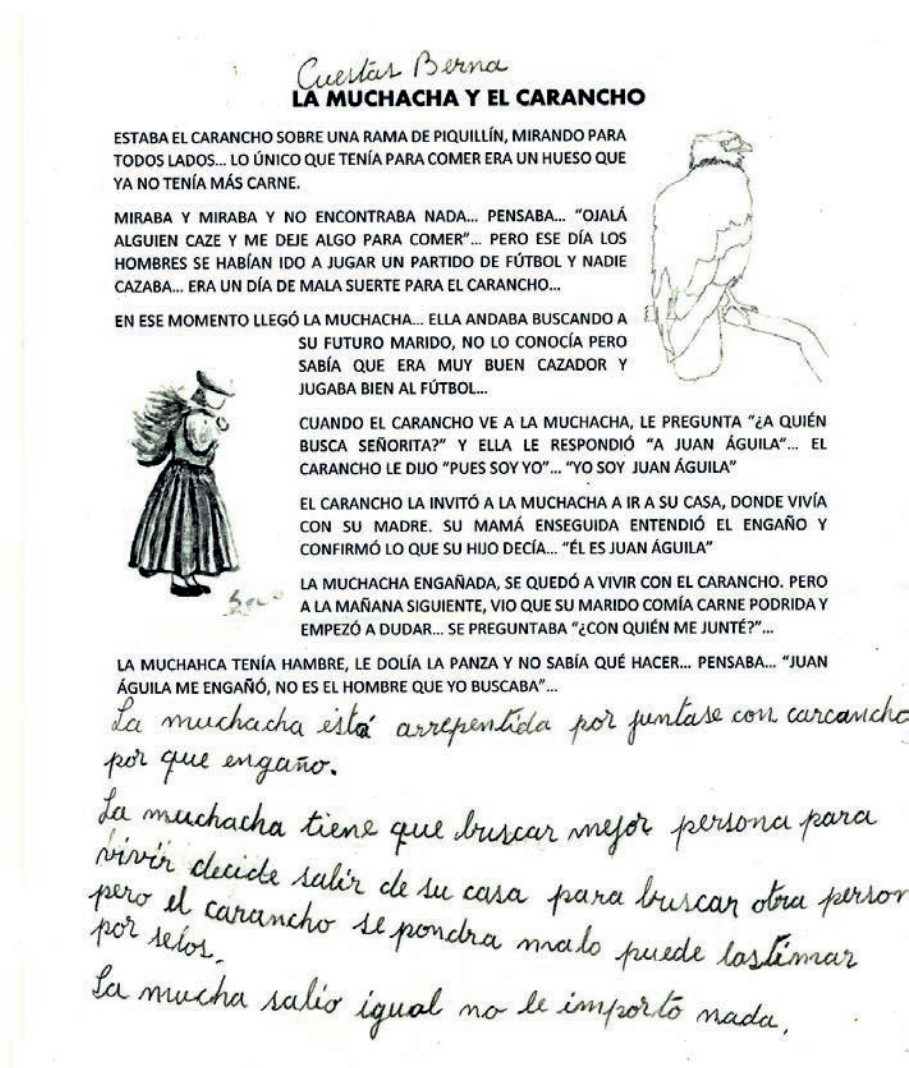 Cuestas Berna
LA MUCHACHA Y EL CARANCHO
ESTABA EL CARANCHO SOBRE UNA RAMA DE PIQUILLÍN, MIRANDO PARA
TODOS LADOS... LO ÚNICO QUE TENÍA PARA COMER ERA UN HUESO QUE
YA NO TENÍA MÁS CARNE.
MIRABA Y MIRABA Y NO ENCONTRABA NADA... PENSABA... “OJALÁ
ALGUIEN CAZE Y ME DEJE ALGO PARA COMER”... PERO ESE DÍA LOS
HOMBRES SE HABÍAN IDO A JUGAR UN PARTIDO DE FÚTBOL Y NADIE
CAZABA... ERA UN DÍA DE MALA SUERTE PARA EL CARANCHO...
EN ESE MOMENTO LLEGÓ LA MUCHACHA... ELLA ANDABA BUSCANDO A
SU FUTURO MARIDO, NO LO CONOCÍA PERO
SABÍA QUE ERA MUY BUEN CAZADOR Y
JUGABA BIEN AL FÚTBOL...
CUANDO EL CARANCHO VE A LA MUCHACHA, LE PREGUNTA “¿A QUIÉN
BUSCA SEÑORITA?” Y ELLA LE RESPONDIÓ “A JUAN ÁGUILA”... EL
CARANCHO LE DIJO “PUES SOY YO”... “YO SOY JUAN ÁGUILA”
EL CARANCHO LA INVITÓ A LA MUCHACHA A IR A SU CASA, DONDE VIVÍA
CON SU MADRE. SU MAMÁ ENSEGUIDA ENTENDIÓ EL ENGAÑO Y
CONFIRMÓ LO QUE SU HIJO DECÍA... “ÉL ES JUAN ÁGUILA”
LA MUCHACHA ENGAÑADA, SE QUEDÓ A VIVIR CON EL CARANCHO. PERO
A LA MAÑANA SIGUIENTE, VIO QUE SU MARIDO COMÍA CARNE PODRIDA Y
EMPEZÓ A DUDAR... SE PREGUNTABA “¿CON QUIÉN ME JUNTÉ?”...
LA MUCHAHCA TENÍA HAMBRE, LE DOLÍA LA PANZA Y NO SABÍA QUÉ HACER... PENSABA... “JUAN
ÁGUILA ME ENGAÑÓ, NO ES EL HOMBRE QUE YO BUSCABA”...
La muchacha está arrepentida por juntase con carcancho
por que engaño.
La muchacha tiene que buscar mejor persona para
vivir decide salir de su casa para buscar otra person
pero el carancho se pondra malo puede lastimar
por selos.
La mucha salio igual no le importó nada.